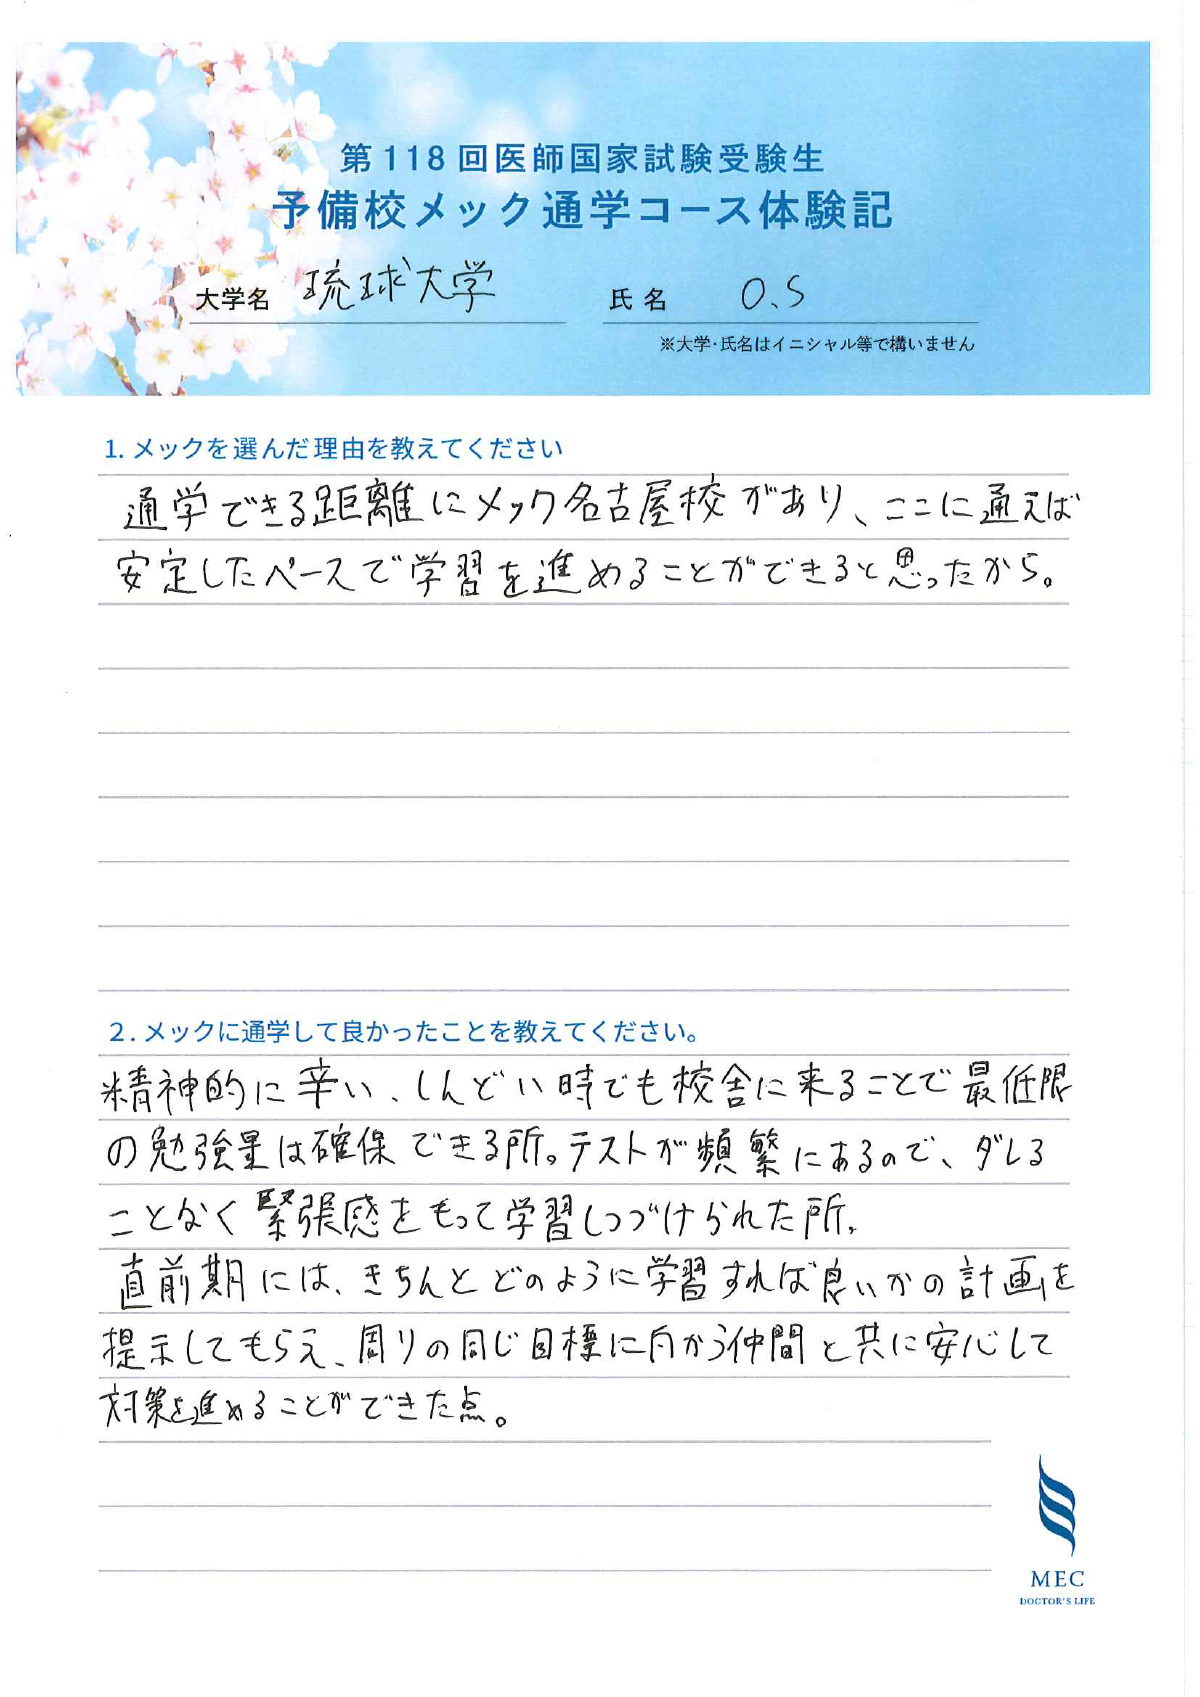 第118回医師国家試験受験生
予備校メック通学コース体験記
大学名 琉球大学 氏名 O.S
※大学・氏名はイニシャル等で構いません
1. メックを選んだ理由を教えてください
通学できる距離にメック名古屋校があり、ここに通えば
安定したペースで学習を進めることができると思ったから。
2. メックに通学して良かったことを教えてください。
精神的に辛い、しんどい時でも校舎に来ることで最低限
の勉強量は確保できる所。テストが頻繁にあるので、ダレる
ことなく緊張感をもって学習しつづけられた所。
直前期には、きちんとどのように学習すれば良いかの計画を
提示してもらえ、周りの同じ目標に向かう仲間と共に安心して
対策を進めることができた点。
MEC
DOCTOR'S LIFE